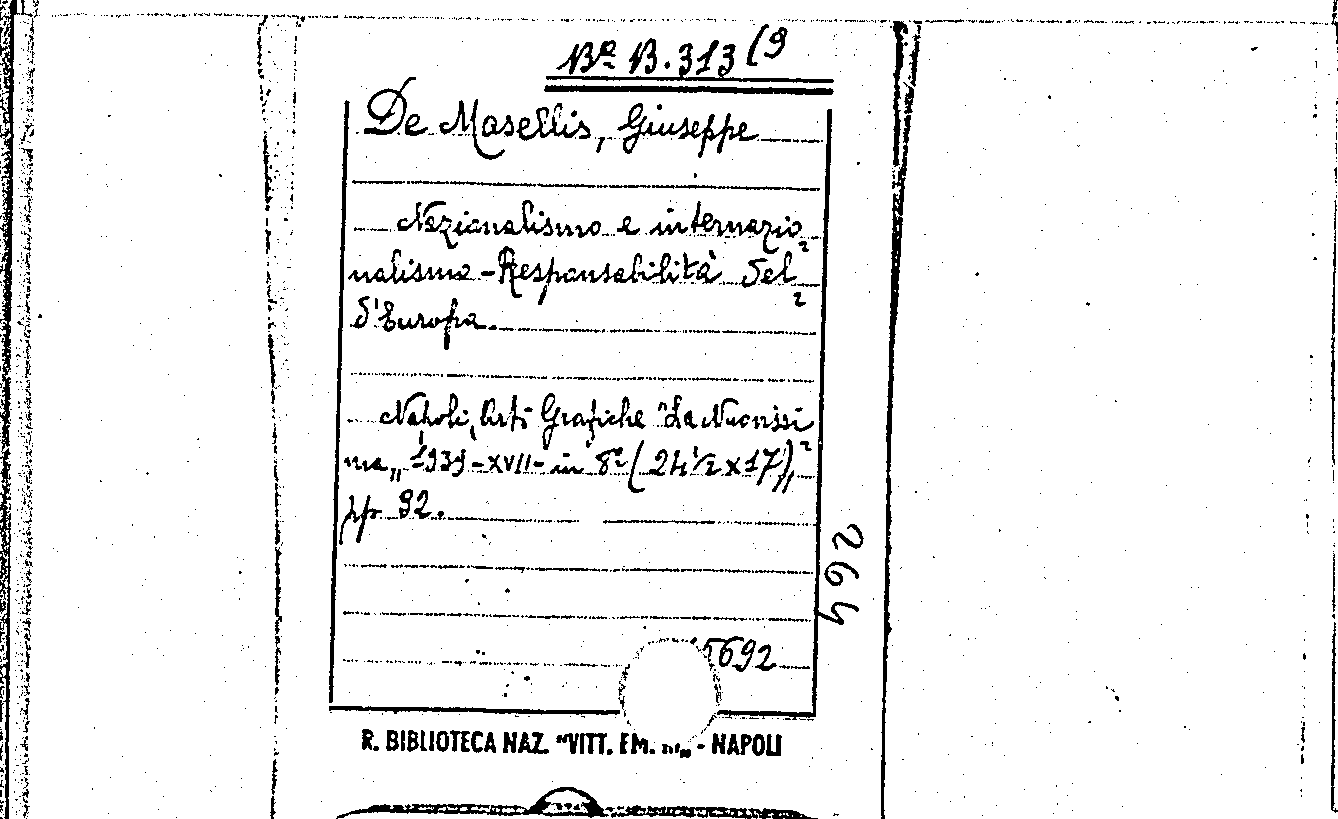 Bª B. 313 (9
De Masellis, Giuseppe
Nazionalismo e internazio=
nalismo - Responsabilità del=
d'Europa.
Napoli, Arti Grafiche "La Nuovissi=
ma„ 1939-XVII- in 8º (24½ x 17),
pp 92.
264
5692
R. BIBLIOTECA NAZ. "VITT. EM. III„ - NAPOLI